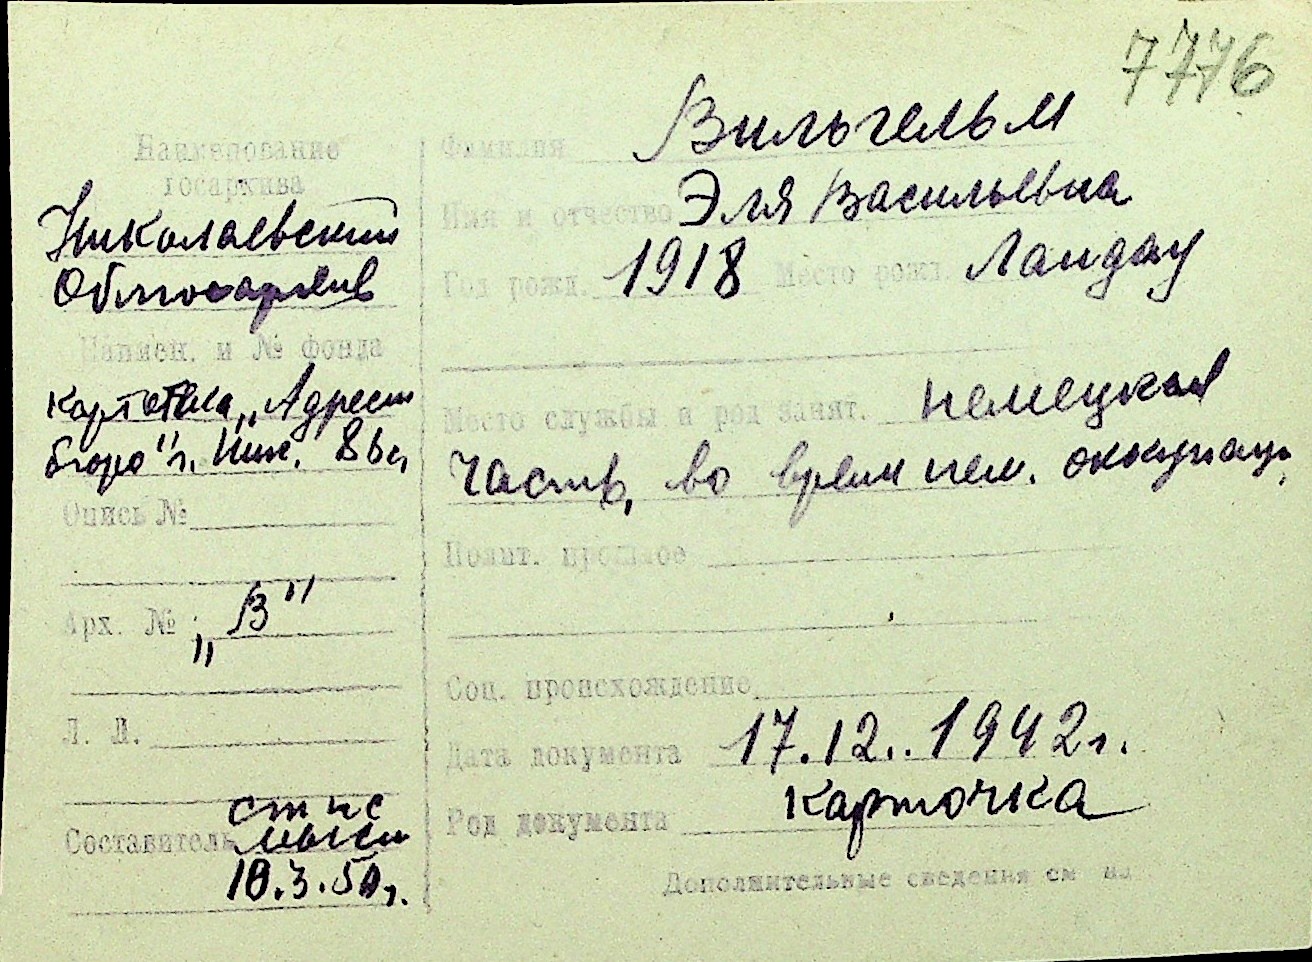 7776
Наименование
госархива
Николаевский
Облгосархив
Наимен. и № фонда
картотека „Адресн
бюро" г. Ник.
Опись №
Арх. № „В"
Л. Л.
Составитель
10.3.50г.
Фамилия Вильгельм
Имя и отчество Эля Васильевна
Год рожд. 1918 Место рожд. Ландау
Место службы и род занят. немецкая
часть, во время нем. оккупац.
Полит. прошлое
Соц. происхождение
Дата документа 17.12.1942г.
Род документа карточка
Дополнительные сведения см на